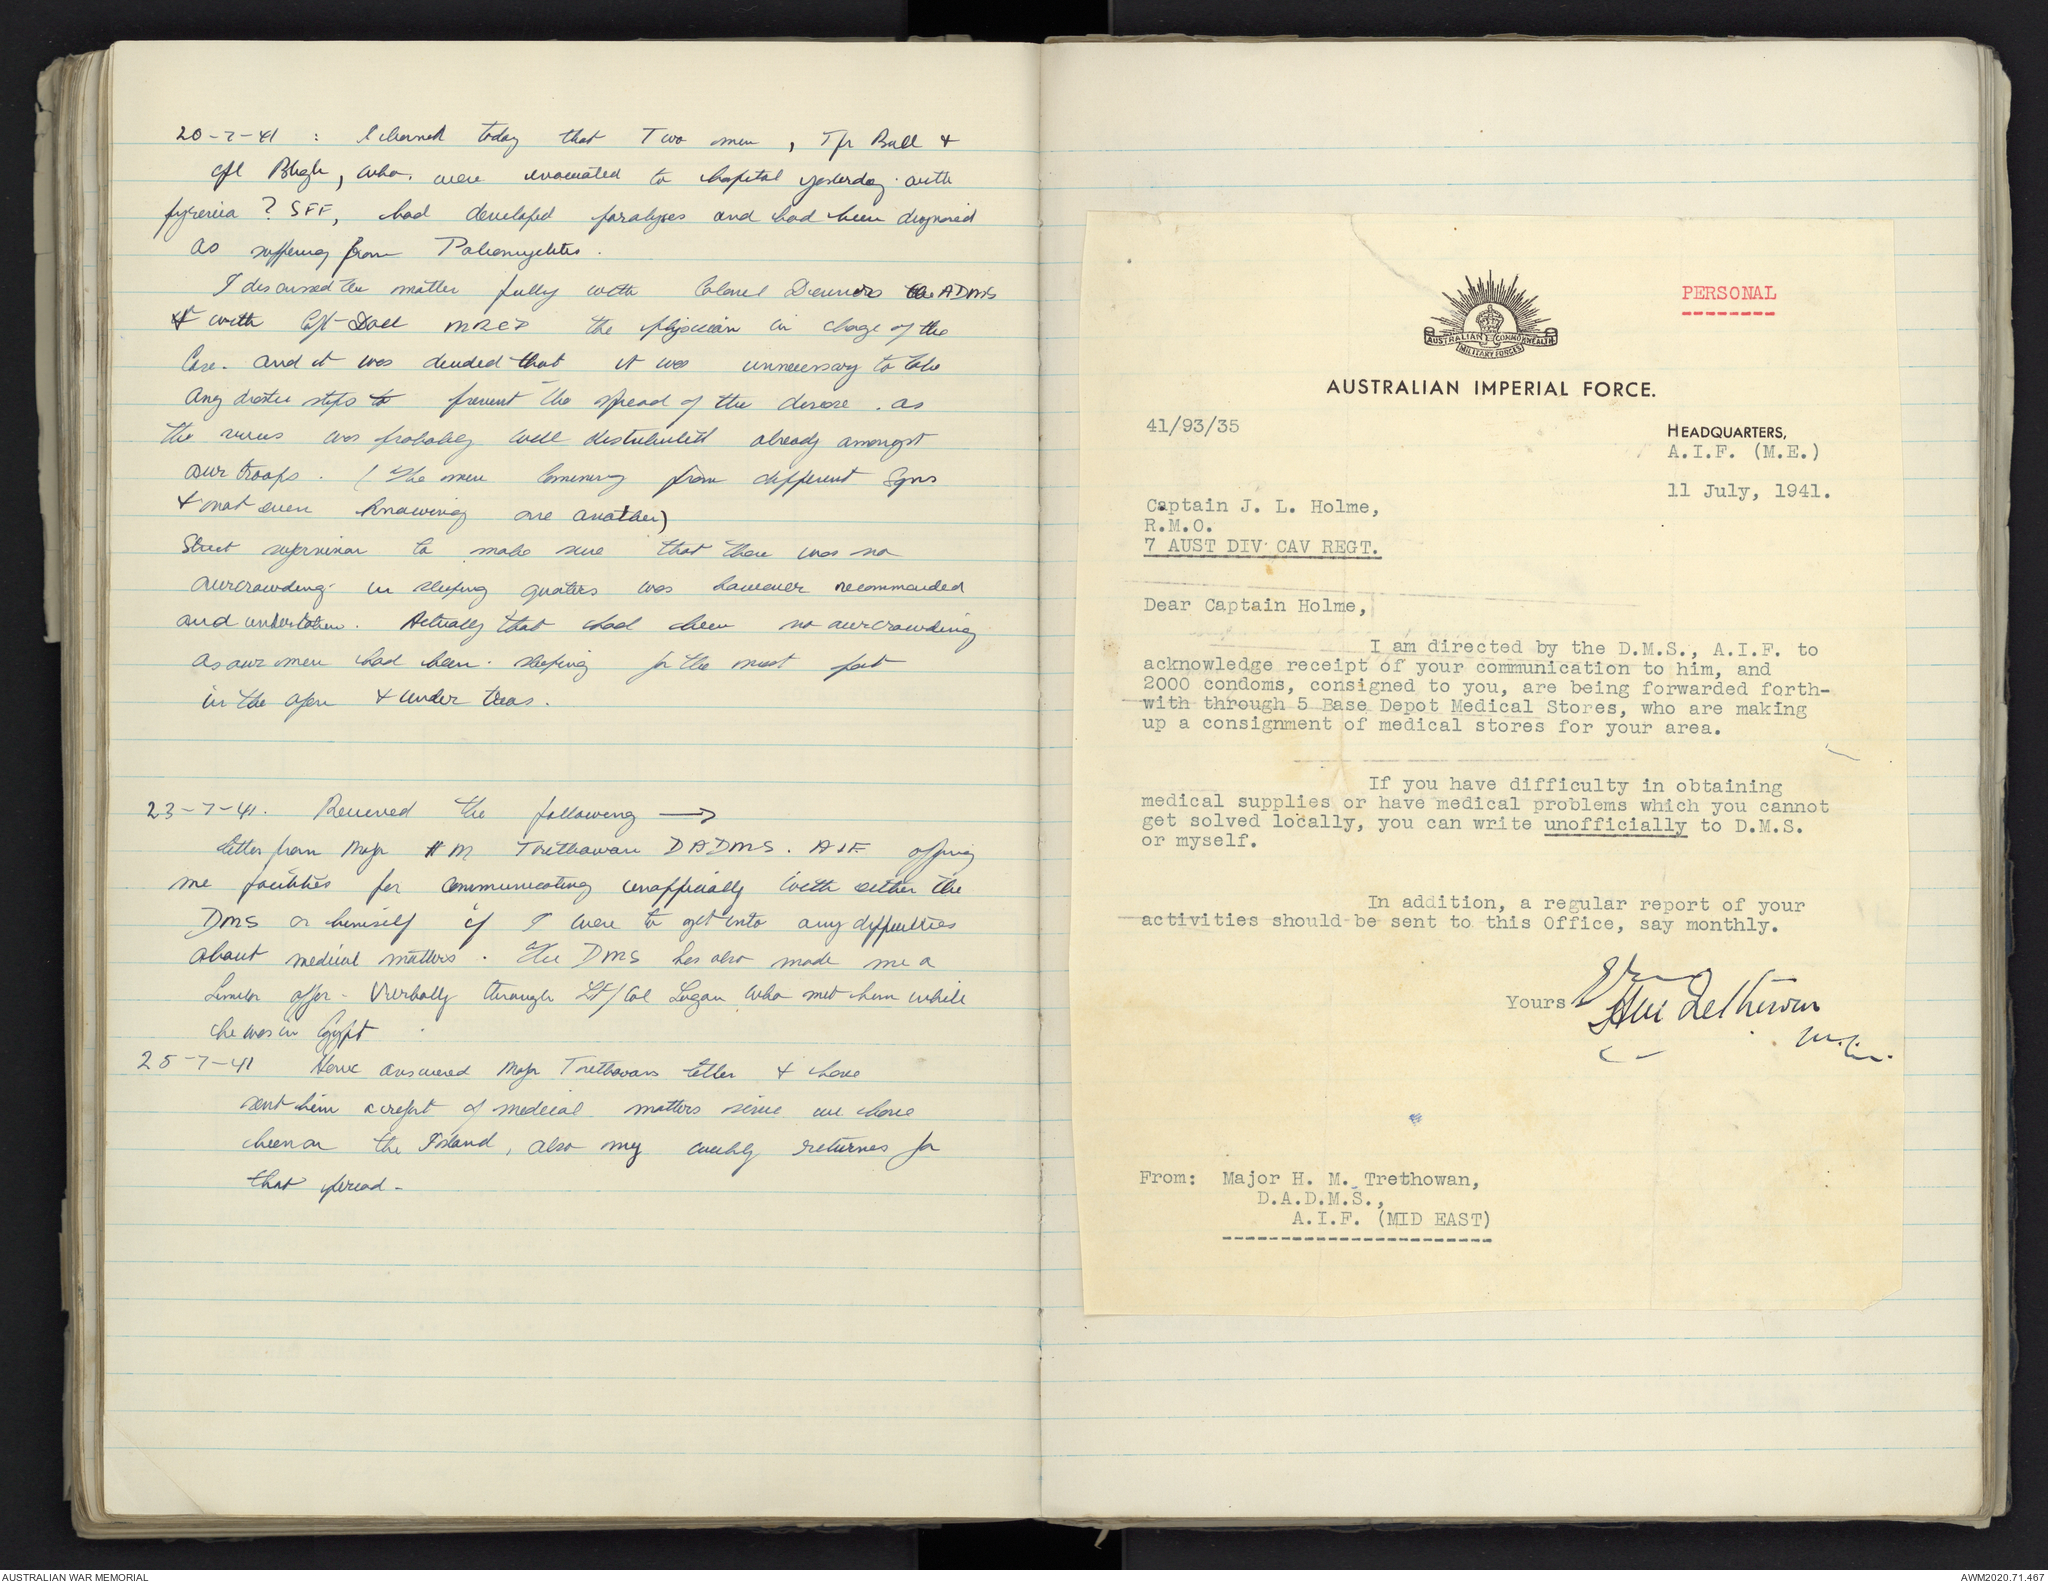 20-7-41 : I learned today that Two men, Tpr Ball &
Cpl Bligh, who were evacuated to hospital yesterday with
pyrexia ? SFF, had developed paralyses and had been diagnosed
as suffering from Poliomyelitis.
I discussed the matter fully with Colonel the ADMS
& with Capt MRCP the physician in charge of the
Case. and it was decided that it was unnecessary to take
any drastic steps to prevent the spread of the disease. as
the virus was probably well distributed already amongst
our troops. (The men coming from different Sqns
& not even knowing one another)
Strict supervision to make sure that there was no
overcrowding in sleeping quarters was however recommended
and undertaken. Actually that had been no overcrowding
as our men had been sleeping for the most part
in the open & under trees.
23-7-41. Received the following →
letter from Major H M Trethowan DADMS. AIF offering
me facilities for communicating unofficially with either the
DMS or himself if I were to get into any difficulties
about medical matters. The DMS has also made me a
similar offer - Verbally through Lt/Col Logan who met him while
he was in Egypt
25-7-41 Have answered Major Trethowans letter & have
sent him a report of medical matters since we have
been on the Island, also my weekly returnes for
that period -
PERSONAL
AUSTRALIAN COMMONWEALTH
MILITARY FORCES
AUSTRALIAN IMPERIAL FORCE.
41/93/35
HEADQUARTERS,
A.I.F. (M.E.)
11 July, 1941.
Captain J. L. Holme,
R.M.O.
7 AUST DIV CAV REGT.
Dear Captain Holme,
I am directed by the D.M.S., A.I.F. to
acknowledge receipt of your communication to him, and
2000 condoms, consigned to you, are being forwarded forth-
with through 5 Base Depot Medical Stores, who are making
up a consignment of medical stores for your area.
If you have difficulty in obtaining
medical supplies or have medical problems which you cannot
get solved locally, you can write unofficially to D.M.S.
or myself.
In addition, a regular report of your
activities should be sent to this Office, say monthly.
Yours
Trethowan
From: Major H. M. Trethowan,
D.A.D.M.S.,
A.I.F. (MID EAST)
AUSTRALIAN WAR MEMORIAL
AWM2020.71.467